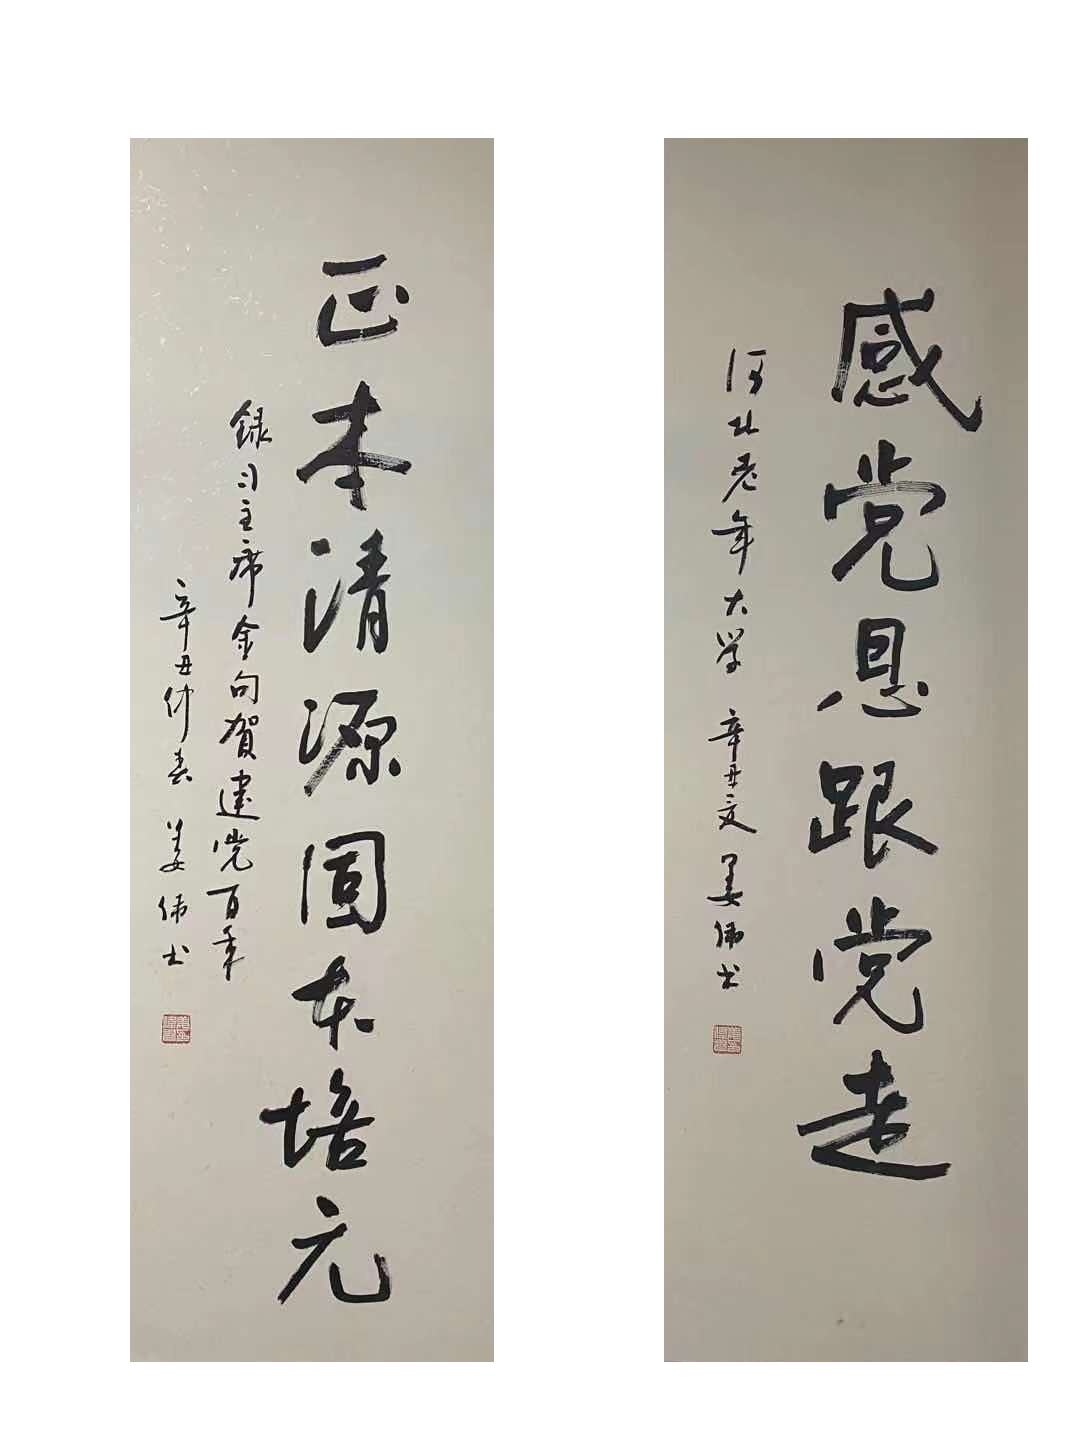 感党恩跟党走
河北老年大学 辛丑夏 姜伟书
正本清源固本培元
録习主席金句贺建党百年
辛丑仲春 姜伟书